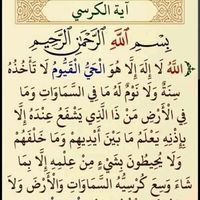 آية الكرسي
بِسْمِ اللَّهِ الرَّحْمَٰنِ الرَّحِيمِ
اللَّهُ لَا إِلَٰهَ إِلَّا هُوَ الْحَيُّ الْقَيُّومُ لَا تَأْخُذُهُ
سِنَةٌ وَلَا نَوْمٌ لَهُ مَا فِي السَّمَاوَاتِ وَمَا
فِي الْأَرْضِ مَن ذَا الَّذِي يَشْفَعُ عِنْدَهُ إِلَّا
بِإِذْنِهِ يَعْلَمُ مَا بَيْنَ أَيْدِيهِمْ وَمَا خَلْفَهُمْ
وَلَا يُحِيطُونَ بِشَيْءٍ مِنْ عِلْمِهِ إِلَّا بِمَا
شَاءَ وَسِعَ كُرْسِيُّهُ السَّمَاوَاتِ وَالْأَرْضَ وَلَا